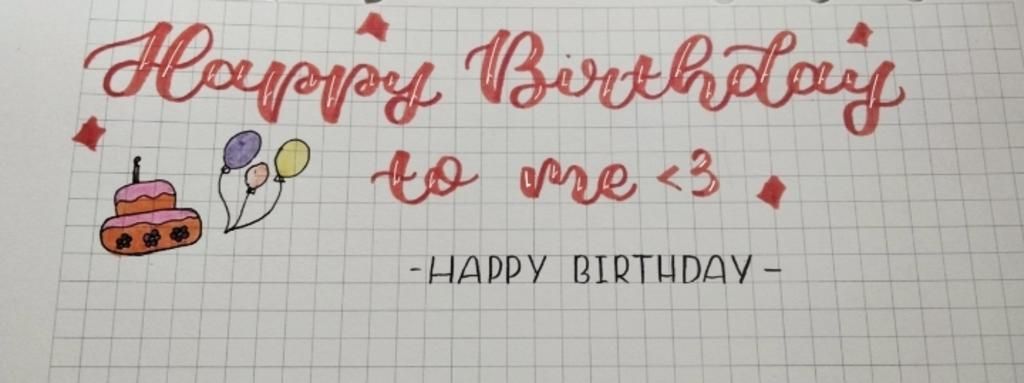 Happy Birthday
to me <3
-HAPPY BIRTHDAY-